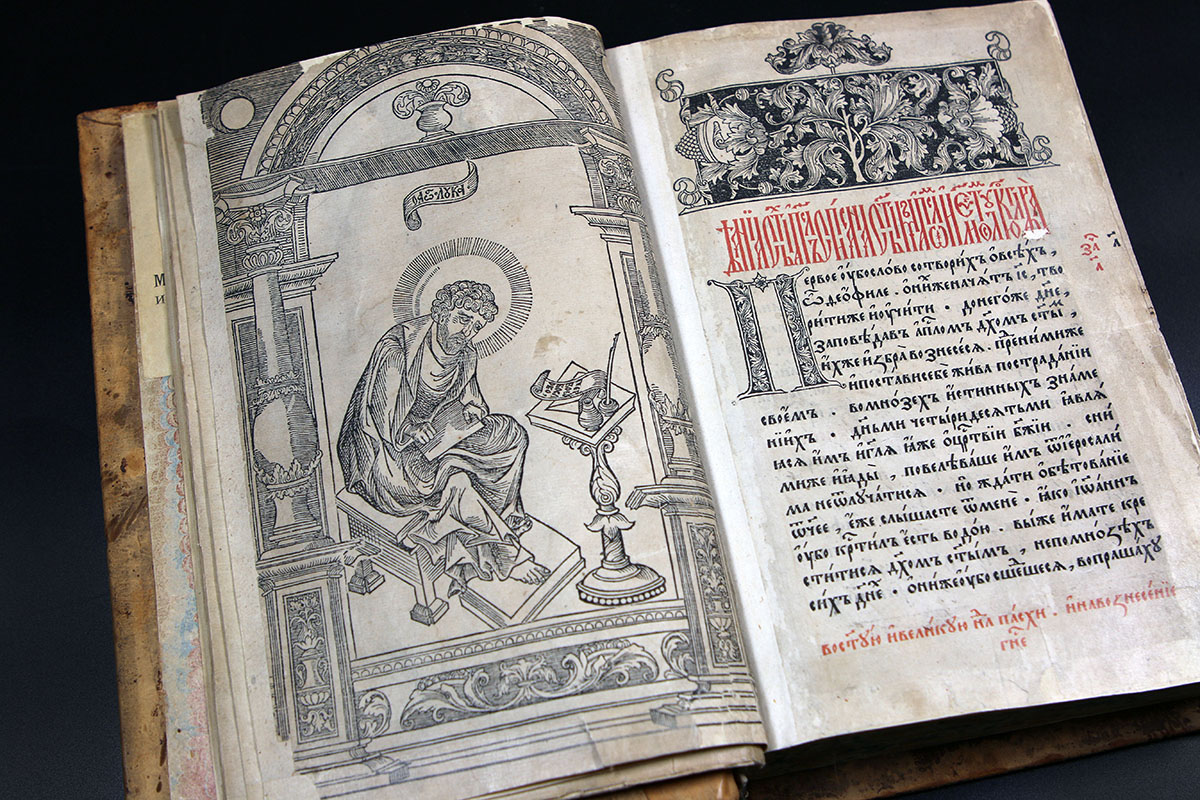 Лꙋка
Первое ѹбо слово сотворихъ ѡ всѣхъ,
ѽ ѳеофиле · ѡ ниже начатъ і҃с, тво
рити же и ѹчити · до негоже дн҃е,
заповѣдавъ ап҃лом дх҃омъ ст҃ым
ихже избра вознесесѧ · пре нимиже
и постави себе жива по страданїи
своемъ · во мнозехъ истинныхъ знаме
нїихъ · дн҃ьми четыридесѧтьми ꙗвлѧ
ꙗсѧ имъ и гл҃ѧ ꙗже ѡ цр҃твїи бж҃їи · с ни
миже и ꙗды, повелѣваше имъ ѿ іеросали
ма не ѿлучатисѧ · но ждати ѡбѣтованїе
ѿчее, еже слышасте ѿ мене · ꙗко іѡаннъ
ѹбо кр҃тилъ есть водою · вы же имате кре
ститисѧ дх҃омъ ст҃ымъ, не по мнозѣхъ
сихъ дн҃е · ѡниже ѹбо сшешесѧ, вопрашаху
во ст҃ую и великую нл҃ пасхи · и на вознесенїе
гн҃е